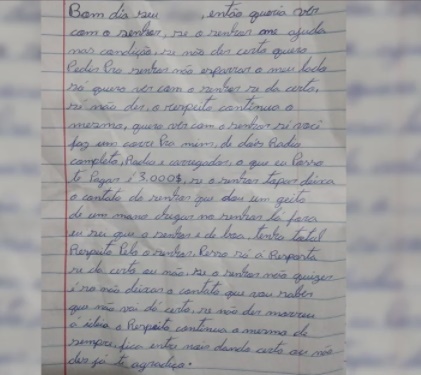 Bom dia seu , então queria ver
com o senhor, se o senhor me ajuda
nas condição, se não der certo quero
Pedir Pro senhor não esparrar o meu lado
só quero ver com o senhor se da certo,
si não der, o respeito continua o
mesmo, quero ver com o senhor si você
faz um corre Pro mim, de dois Radio
completo, Radio e carregador, o que eu Posso
te Pagar é 3.000$, se o senhor tapar deixa
o contato do senhor que dou um geito
de um mano chegar no senhor la fora
eu sei que o senhor e de boa, tenho total
Respeito Pelo o senhor, Penso só a Resposta
se da certo ou não, se o senhor não quizer
é só não deixar o contato que vou saber
que não vai dá certo, se não der morreu
a ideia o Respeito continua o mesmo de
sempre, fica entre nois dando certo ou não
des já te agradeço.